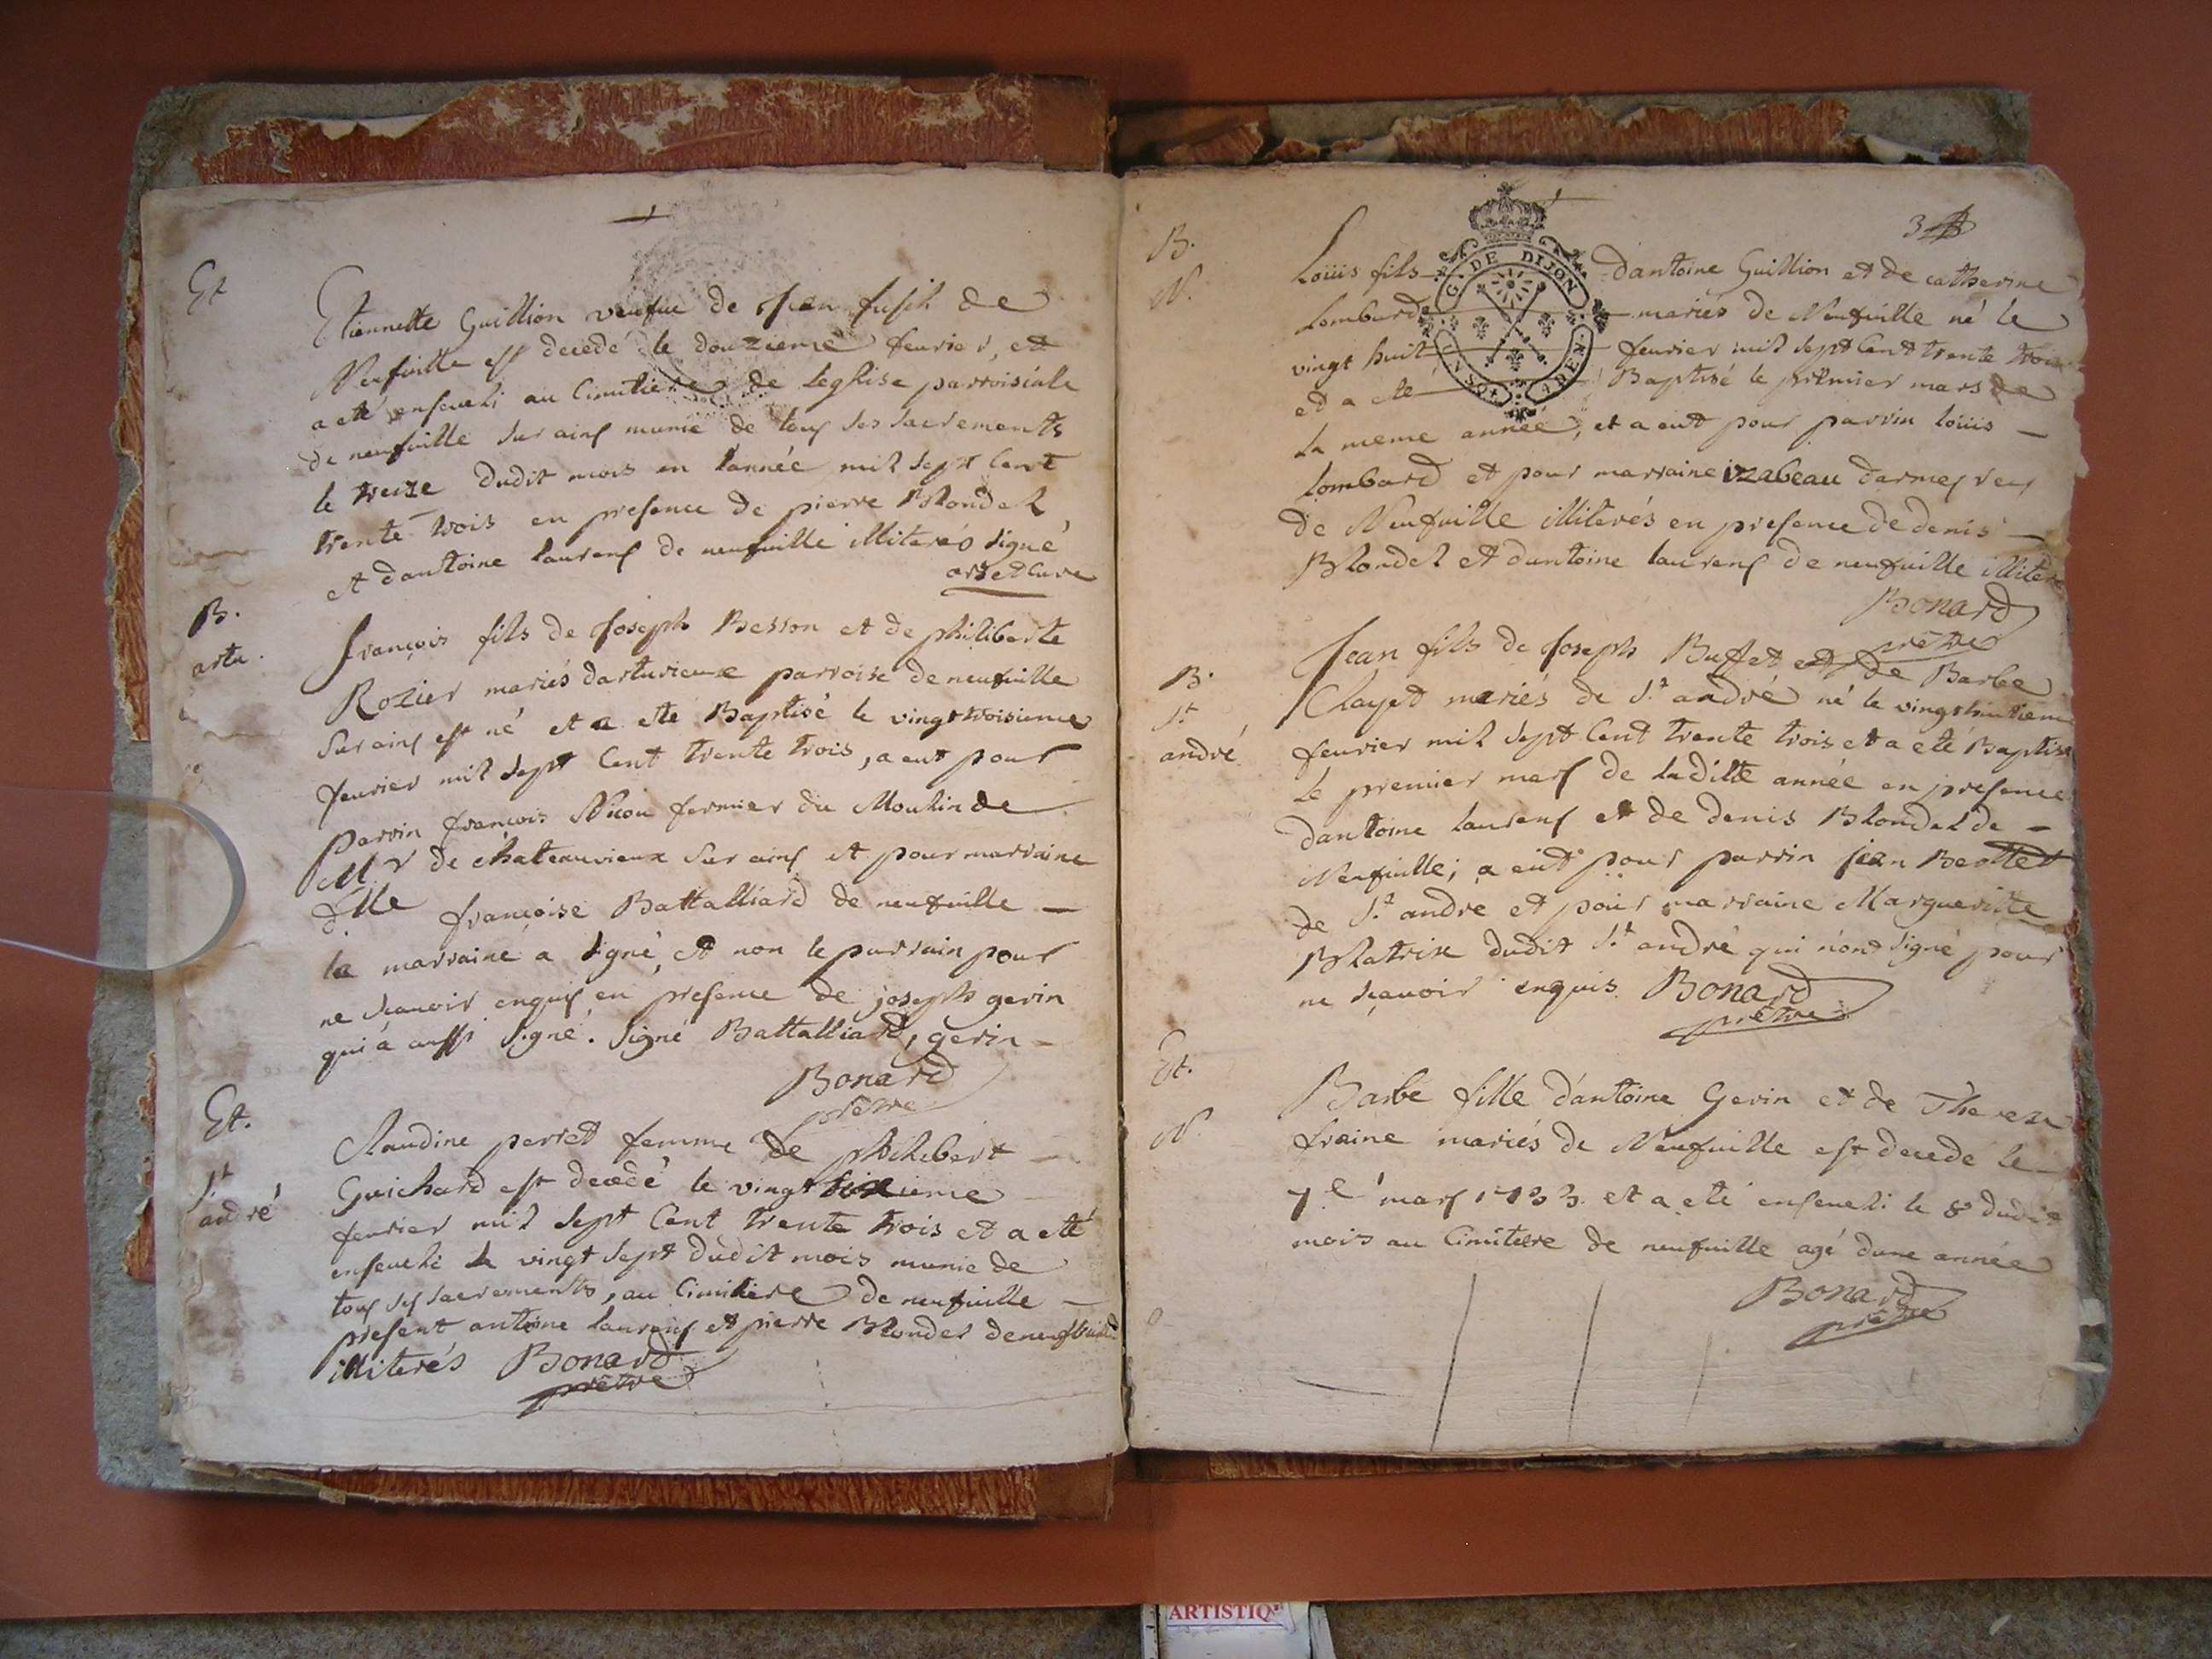 Et
Etiennette Guillion veufue de Jean fusih de
Neufuille est decedé le douzieme feurier, et
a eté enseueli au Cimetiere de leglise parroisiale
de neufuille sur ains munie de tous ses sacrements
le treize dudit mois en lannée mil sept Cent
trente trois en presence de pierre Blondel
et dantoine laurens de neufuille illiterés signé
Curé
B.
artu.
françois fils de Joseph Besson et de philiberte
Rozier mariés darturieux parroise de neufuille
sur ains est né et a eté Baptisé le vingttroisieme
feurier mil sept Cent trente trois, a eut pour
parrin françois fermier du Moulin de
Mr de chateauvieux sur ains et pour marraine
dlle françoise Battalliard de neufuille
la marraine a signé, et non le parrain pour
ne scauoir enquis en presence de joseph gerin
qui a aussi signé. signé Battalliard, gerin
Bonard
prêtre
Et.
St
andré
Claudine perret femme de philibert
Guichard est decedé le vingt sixieme
feurier mil sept Cent trente trois et a eté
enseueli le vingt sept dudit mois munie de
tous ses sacrements, au Cimitiere de neufuille
present antoine laurens et pierre Blondel de neufuille
illiterés Bonard
prêtre
3
B.
N.
G. DE DIJON
Loüis fils dantoine Guillion et de catherine
Lombard mariés de Neufuille né le
vingt huit feurier mil sept Cent trente trois
et a eté Baptisé le premier mars de
la meme année, et a eut pour parrin loüis
lombard et pour marraine izabeau
de Neufuille illiterés en presence de denis
Blondel et dantoine laurens de neufuille illiterés
Bonard
prêtre
B.
St
andré
Jean fils de Joseph Buffet et de Barbe
Clayet mariés de St andré né le vingthuitieme
feurier mil sept Cent trente trois et a eté Baptisé
le premier mars de laditte année en presence
dantoine laurens et de denis Blondel de
Neufuille; a eut pour parrin jean
de St andre et pour marraine Margueritte
Blatrix dudit St andré qui nont signé pour
ne scauoir enquis. Bonard
prêtre
Et.
N.
Barbe fille dantoine Gerin et de Therese
fraine mariés de Neufuille est decede le
7e mars 1733. et a eté enseueli le 8e dudit
mois au Cimitiere de neufuille agé dune année
Bonard
prêtre
ARTISTIQ